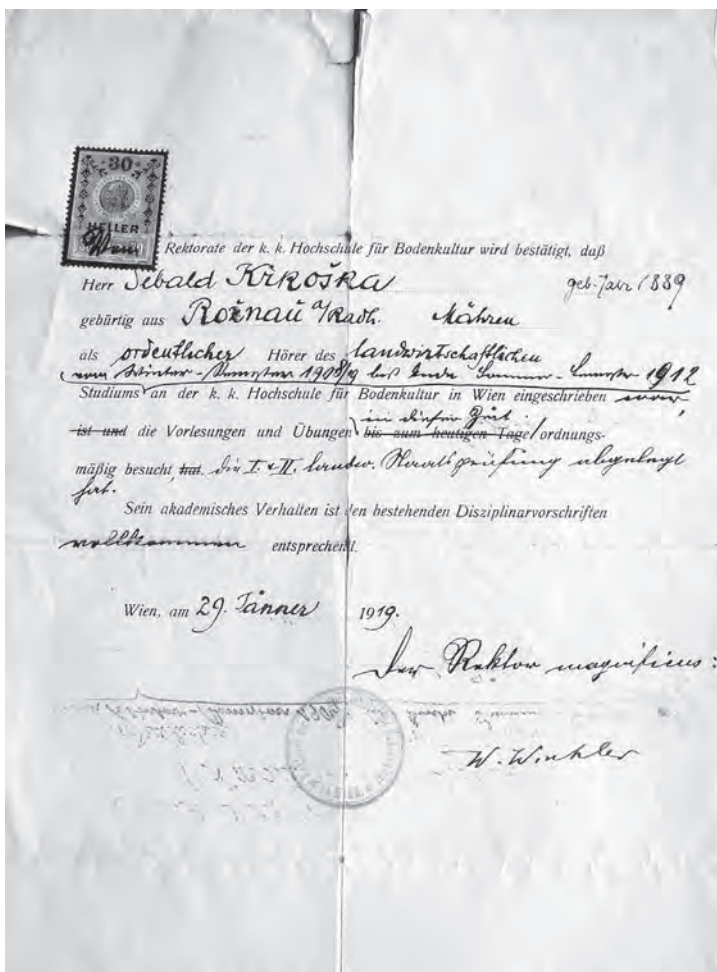 30
HELLER
Rektorate der k. k. Hochschule für Bodenkultur wird bestätigt, daß
Herr Sebald Křkoška geb. Jahr 1889
gebürtig aus Rožnau a/Radh. Mähren
als ordentlicher Hörer des landwirtschaftlichen
vom Winter-Semester 1908/9 bis Ende Sommer-Semester 1912
Studiums an der k. k. Hochschule für Bodenkultur in Wien eingeschrieben war,
in dieser Zeit
ist und die Vorlesungen und Übungen bis zum heutigen Tage ordnungs-
mäßig besucht, hat. die I. & II. landw. Staatsprüfung abgelegt
hat.
Sein akademisches Verhalten ist den bestehenden Disziplinarvorschriften
vollkommen entsprechend.
Wien, am 29. Jänner 1919.
Der Rektor magnificus:
W. Winkler